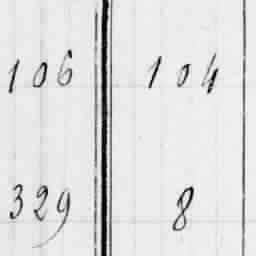 106 104
329 8